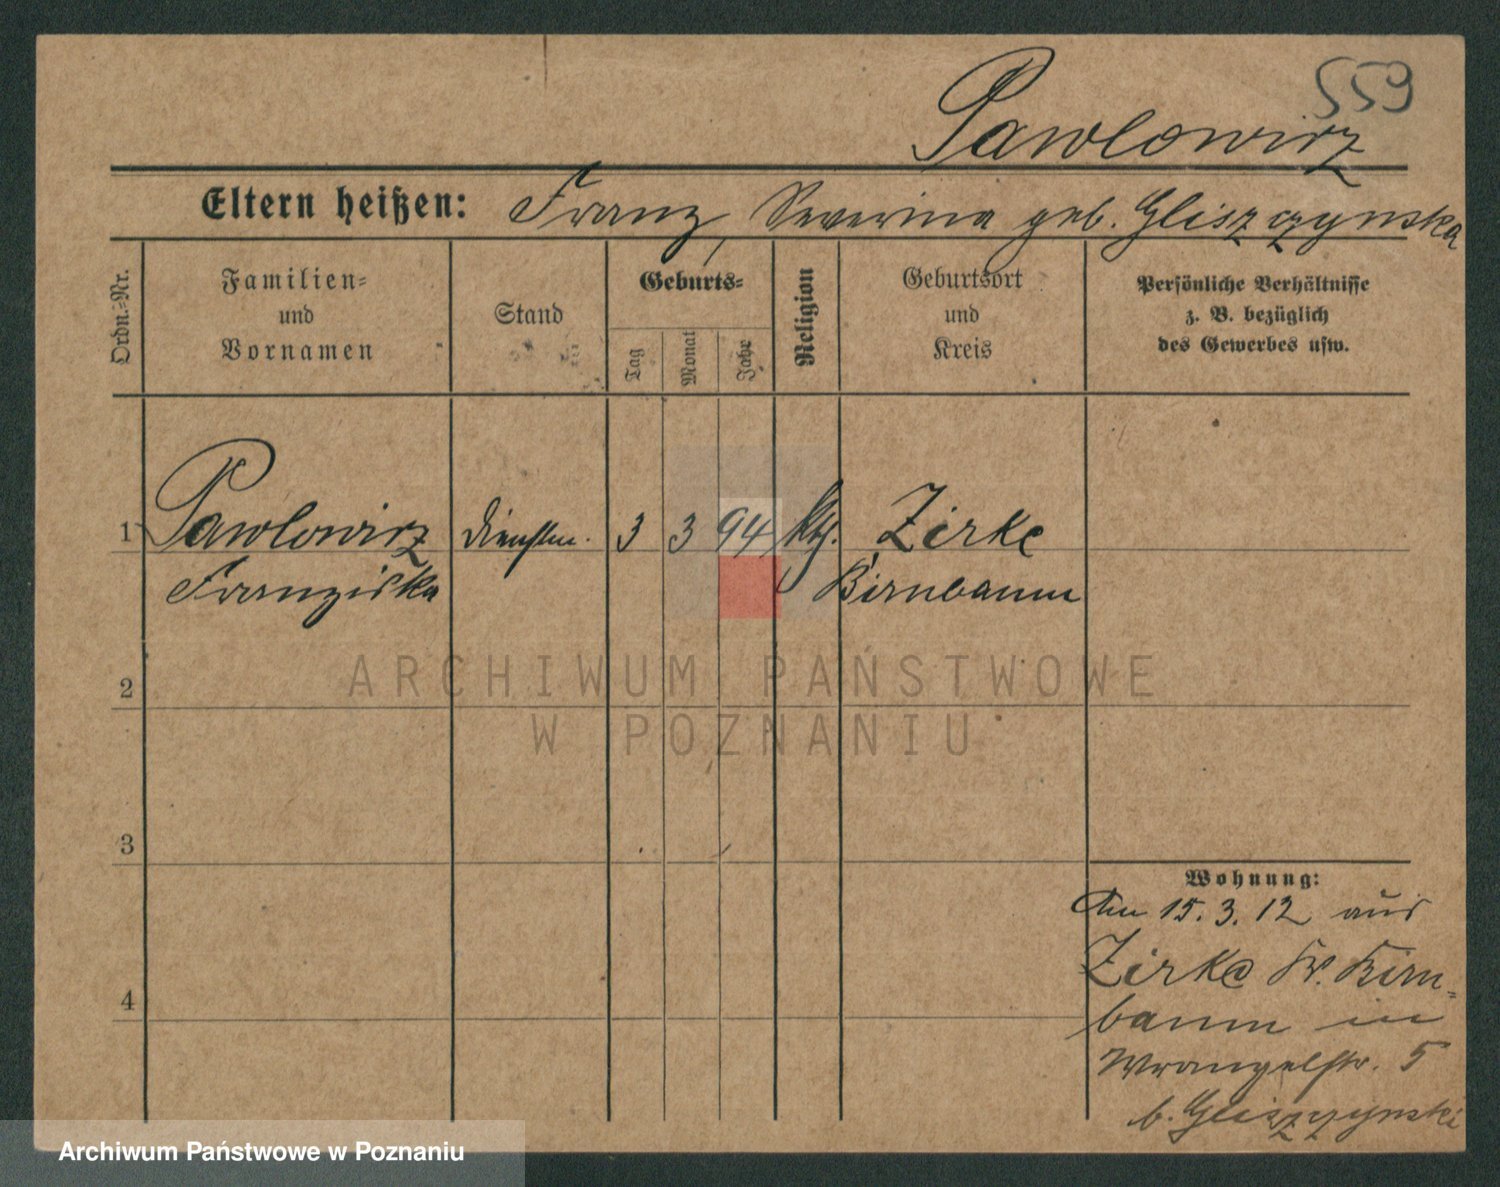 559
Pawlowicz
Eltern heißen: Franz, Severina geb. Gliszczynska
Ordn.-Nr.
Familien-
und
Vornamen
Stand
Geburts-
Tag
Monat
Jahr
Religion
Geburtsort
und
Kreis
Persönliche Verhältnisse
z. B. bezüglich
des Gewerbes usw.
1 Pawlowicz Dienstm. 3 3 94 kth. Zirke
Franziska Birnbaum
2
3
4
Wohnung:
Am 15.3.12 aus
Zirke Kr. Birn-
baum in
Wrangelstr. 5
b. Gliszczynski
ARCHIWUM PAŃSTWOWE
W POZNANIU
Archiwum Państwowe w Poznaniu